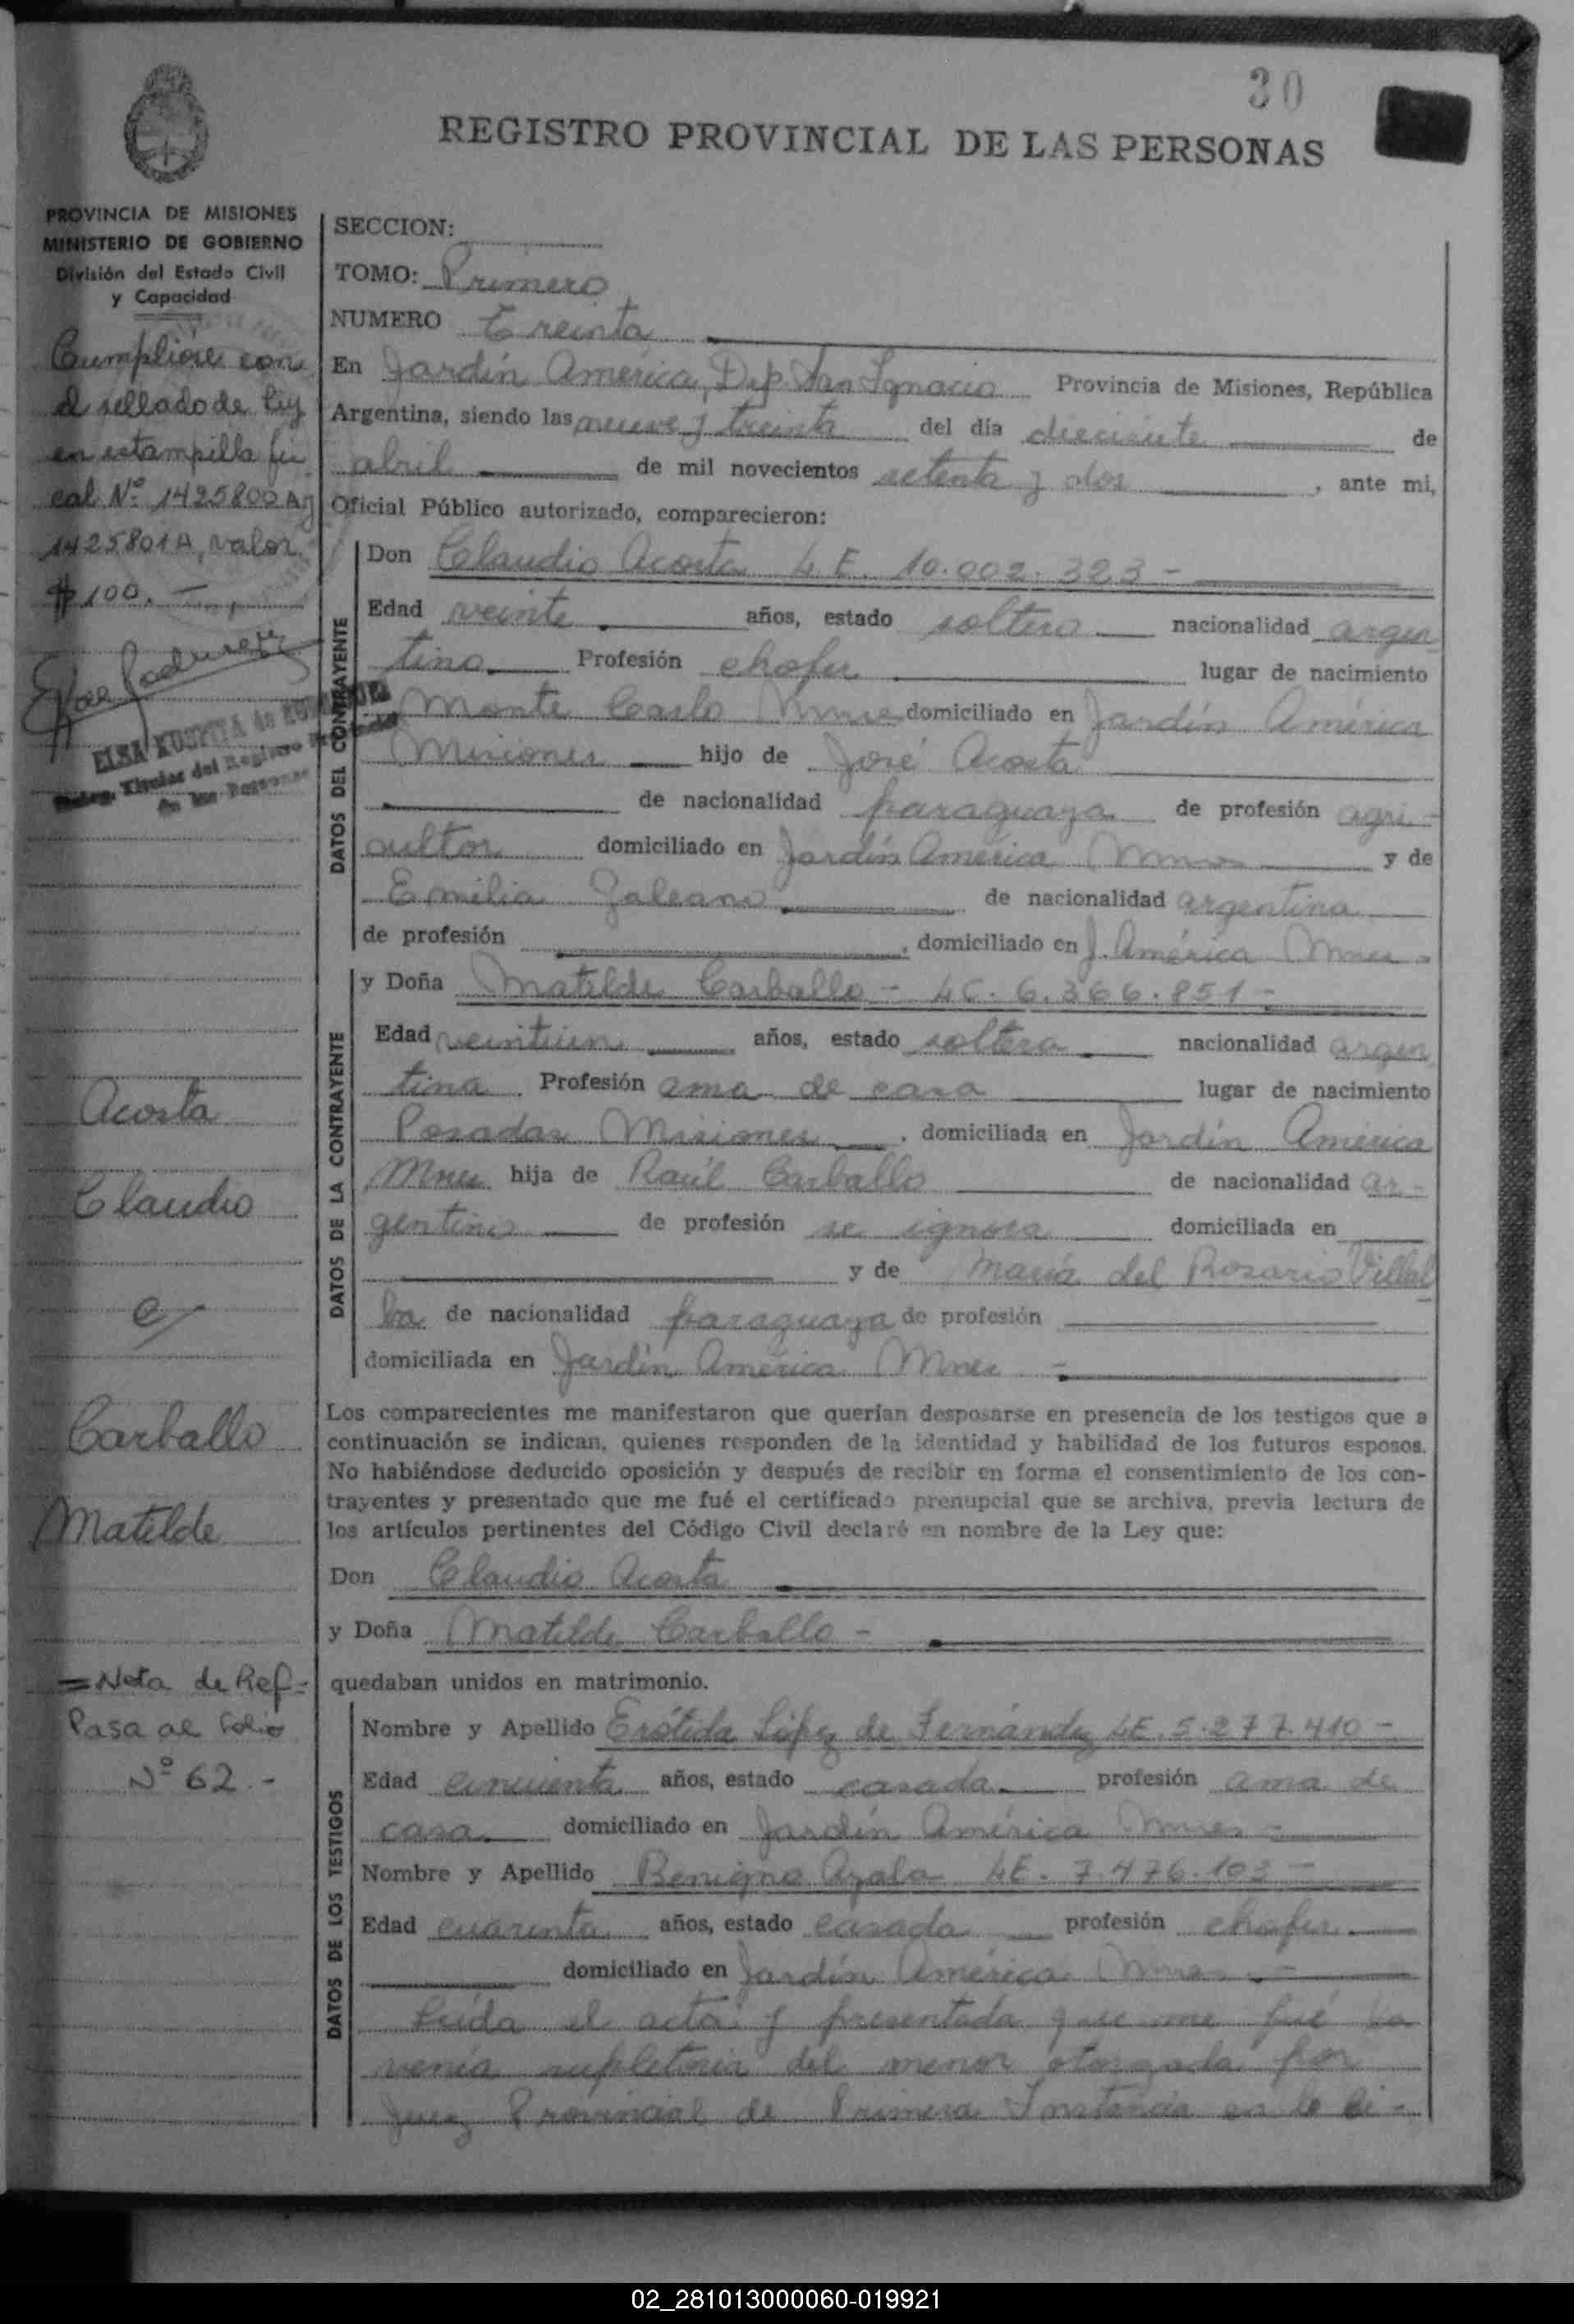 30
REGISTRO PROVINCIAL DE LAS PERSONAS
PROVINCIA DE MISIONES
MINISTERIO DE GOBIERNO
División del Estado Civil
y Capacidad
Cumplióse con
el sellado de ley
en estampilla fis
cal Nº 1425800A y
1425801A, valor
$100.—
ELSA
Titular del Registro
de las Personas
Acosta
Claudio
c/
Carballo
Matilde
= Nota de Ref=
Pasa al Folio
Nº 62.-
SECCION:
TOMO: Primero
NUMERO Treinta
En Jardín América, Dep. San Ignacio Provincia de Misiones, República
Argentina, siendo las nueve y treinta del día diecisiete de
abril de mil novecientos setenta y dos, ante mi,
Oficial Público autorizado, comparecieron:
DATOS DEL CONTRAYENTE
Don Claudio Acosta L.E. 10.002.323-
Edad veinte años, estado soltero nacionalidad argen
tina Profesión chofer lugar de nacimiento
Monte Carlo Mnes domiciliado en Jardín América
Misiones hijo de José Acosta
de nacionalidad paraguaya de profesión agri-
cultor domiciliado en Jardín América Mnes y de
Emilia Galeano de nacionalidad argentina
de profesión , domiciliado en J. América Mnes-
DATOS DE LA CONTRAYENTE
y Doña Matilde Carballo - LC. 6.366.851-
Edad veintiún años, estado soltera nacionalidad argen
tina Profesión ama de casa lugar de nacimiento
Posadas Misiones, domiciliada en Jardín América
Mnes hija de Raúl Carballo de nacionalidad ar-
gentino de profesión se ignora domiciliada en
y de María del Rosario Villal
ba de nacionalidad paraguaya de profesión
domiciliada en Jardín América Mnes -
Los comparecientes me manifestaron que querían desposarse en presencia de los testigos que a
continuación se indican, quienes responden de la identidad y habilidad de los futuros esposos.
No habiéndose deducido oposición y después de recibir en forma el consentimiento de los con-
trayentes y presentado que me fué el certificado prenupcial que se archiva, previa lectura de
los artículos pertinentes del Código Civil declaré en nombre de la Ley que:
Don Claudio Acosta
y Doña Matilde Carballo -
quedaban unidos en matrimonio.
DATOS DE LOS TESTIGOS
Nombre y Apellido Erótida López de Fernández LE. 5.277.410-
Edad cincuenta años, estado casada profesión ama de
casa domiciliado en Jardín América Mnes -
Nombre y Apellido Benigno Ayala LE. 7.476.103-
Edad cuarenta años, estado casado profesión chofer
domiciliado en Jardín América Mnes -
Leída el acta y presentada que me fué la
venia supletoria del menor otorgada por
Juez Provincial de Primera Instancia en lo Ci-
02_281013000060-019921